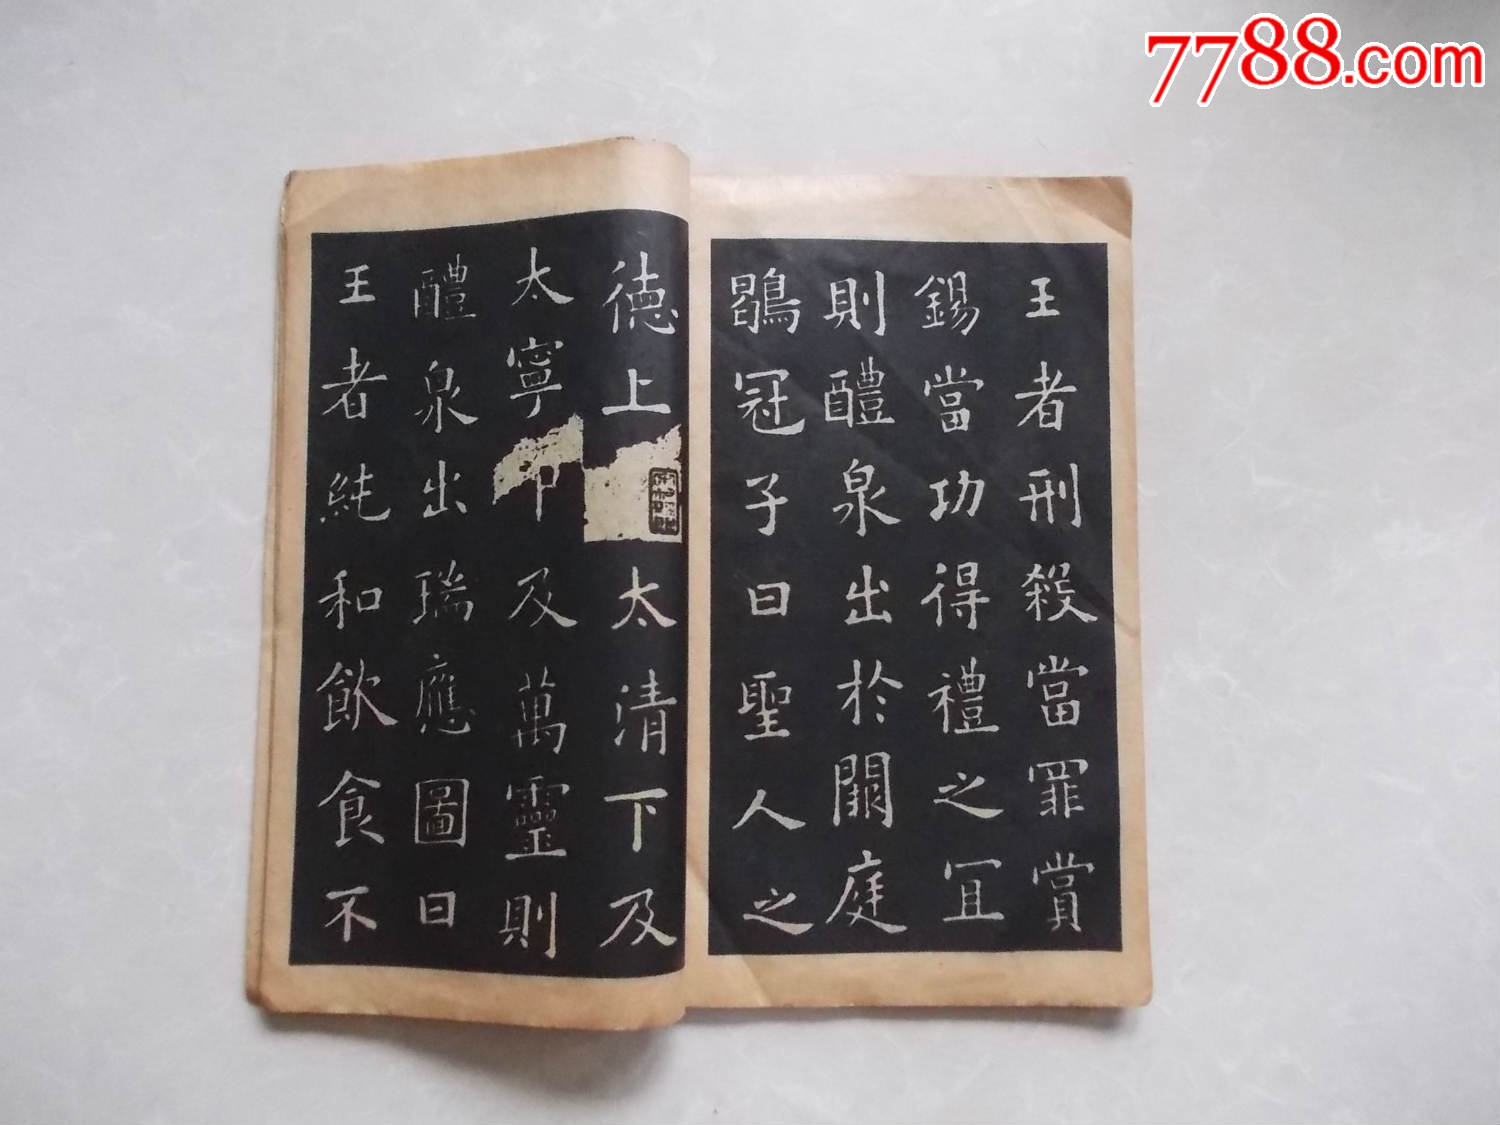 7788.com
王者刑殺當罪賞
錫當功得禮之宜
則醴泉出於闕庭
鶡冠子曰聖人之
德上太清下及
太寧中及萬靈則
醴泉出瑞應圖曰
王者純和飲食不